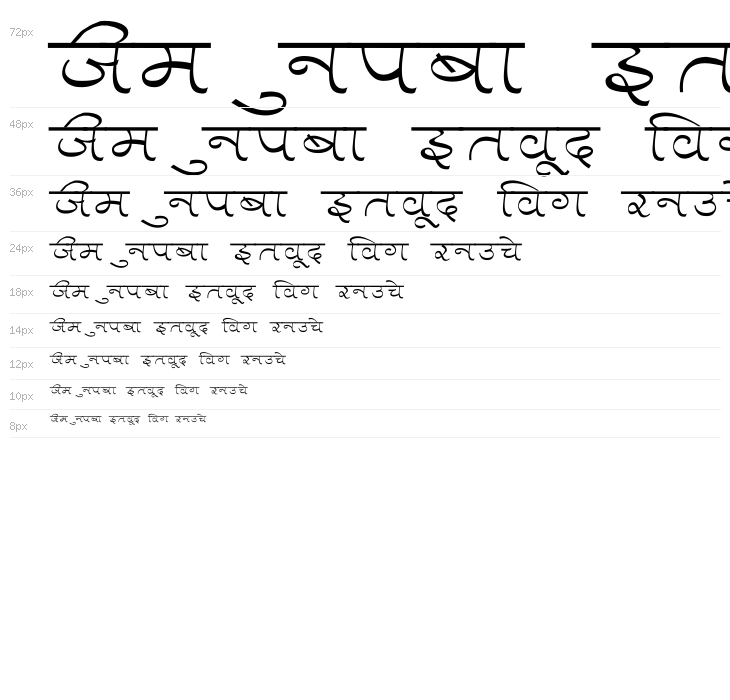 72px जिम ुनपबा इत
48px जिम ुनपबा इतवूद वि
36px जिम ुनपबा इतवूद विग रनउ
24px जिम ुनपबा इतवूद विग रनउचे
18px जिम ुनपबा इतवूद विग रनउचे
14px जिम ुनपबा इतवूद विग रनउचे
12px जिम ुनपबा इतवूद विग रनउचे
10px जिम ुनपबा इतवूद विग रनउचे
8px जिम ुनपबा इतवूद विग रनउचे